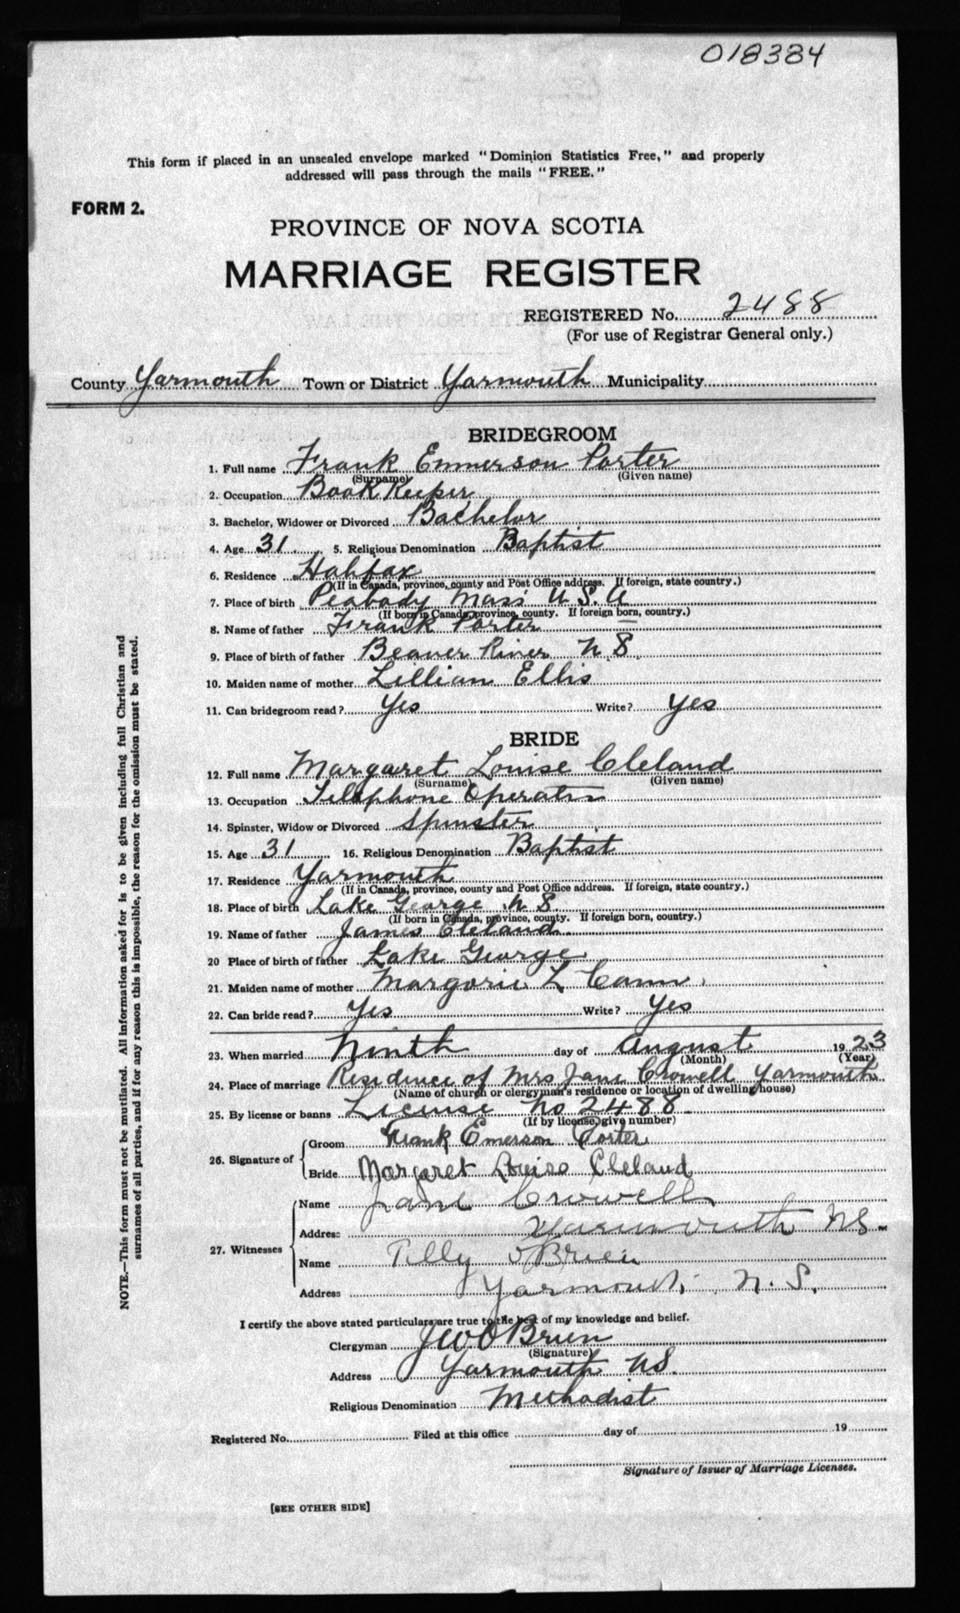 018384
This form if placed in an unsealed envelope marked "Dominion Statistics Free," and properly
addressed will pass through the mails "FREE."
FORM 2.
PROVINCE OF NOVA SCOTIA
MARRIAGE REGISTER
REGISTERED No. 2488
(For use of Registrar General only.)
County Yarmouth Town or District Yarmouth Municipality
BRIDEGROOM
1. Full name Frank Emmerson Porter
(Surname) (Given name)
2. Occupation Book Keeper
3. Bachelor, Widower or Divorced Bachelor
4. Age 31 5. Religious Denomination Baptist
6. Residence Halifax
(If in Canada, province, county and Post Office address. If foreign, state country.)
7. Place of birth Peabody Mass U.S.A
(If born in Canada, province, county. If foreign born, country.)
8. Name of father Frank Porter
9. Place of birth of father Beaver River N.S.
10. Maiden name of mother Lillian Ellis
11. Can bridegroom read? Yes Write? Yes
BRIDE
12. Full name Margaret Louise Cleland
(Surname) (Given name)
13. Occupation Telephone Operator
14. Spinster, Widow or Divorced Spinster
15. Age 31 16. Religious Denomination Baptist
17. Residence Yarmouth
(If in Canada, province, county and Post Office address. If foreign, state country.)
18. Place of birth Lake George N S
(If born in Canada, province, county. If foreign born, country.)
19. Name of father James Cleland
20 Place of birth of father Lake George
21. Maiden name of mother Margorie L Cann.
22. Can bride read? Yes Write? Yes
23. When married Ninth day of August 1923
(Month) (Year)
24. Place of marriage Residence of Mrs Jane Crowell Yarmouth
(Name of church or clergyman's residence or location of dwelling house)
25. By license or banns License No 2488
(If by license, give number)
26. Signature of Groom Frank Emerson Porter
Bride Margaret Louise Cleland
27. Witnesses Name Jane Crowell
Address Yarmouth NS.
Name Tilly O'Brien
Address Yarmouth N.S.
I certify the above stated particulars are true to the best of my knowledge and belief.
Clergyman J W O'Brien
(Signature)
Address Yarmouth NS.
Religious Denomination Methodist
Registered No. Filed at this office day of 19
Signature of Issuer of Marriage Licenses.
[SEE OTHER SIDE]
NOTE.—This form must not be mutilated. All information asked for is to be given including full Christian and
surnames of all parties, and if for any reason this is impossible, the reason for the omission must be stated.